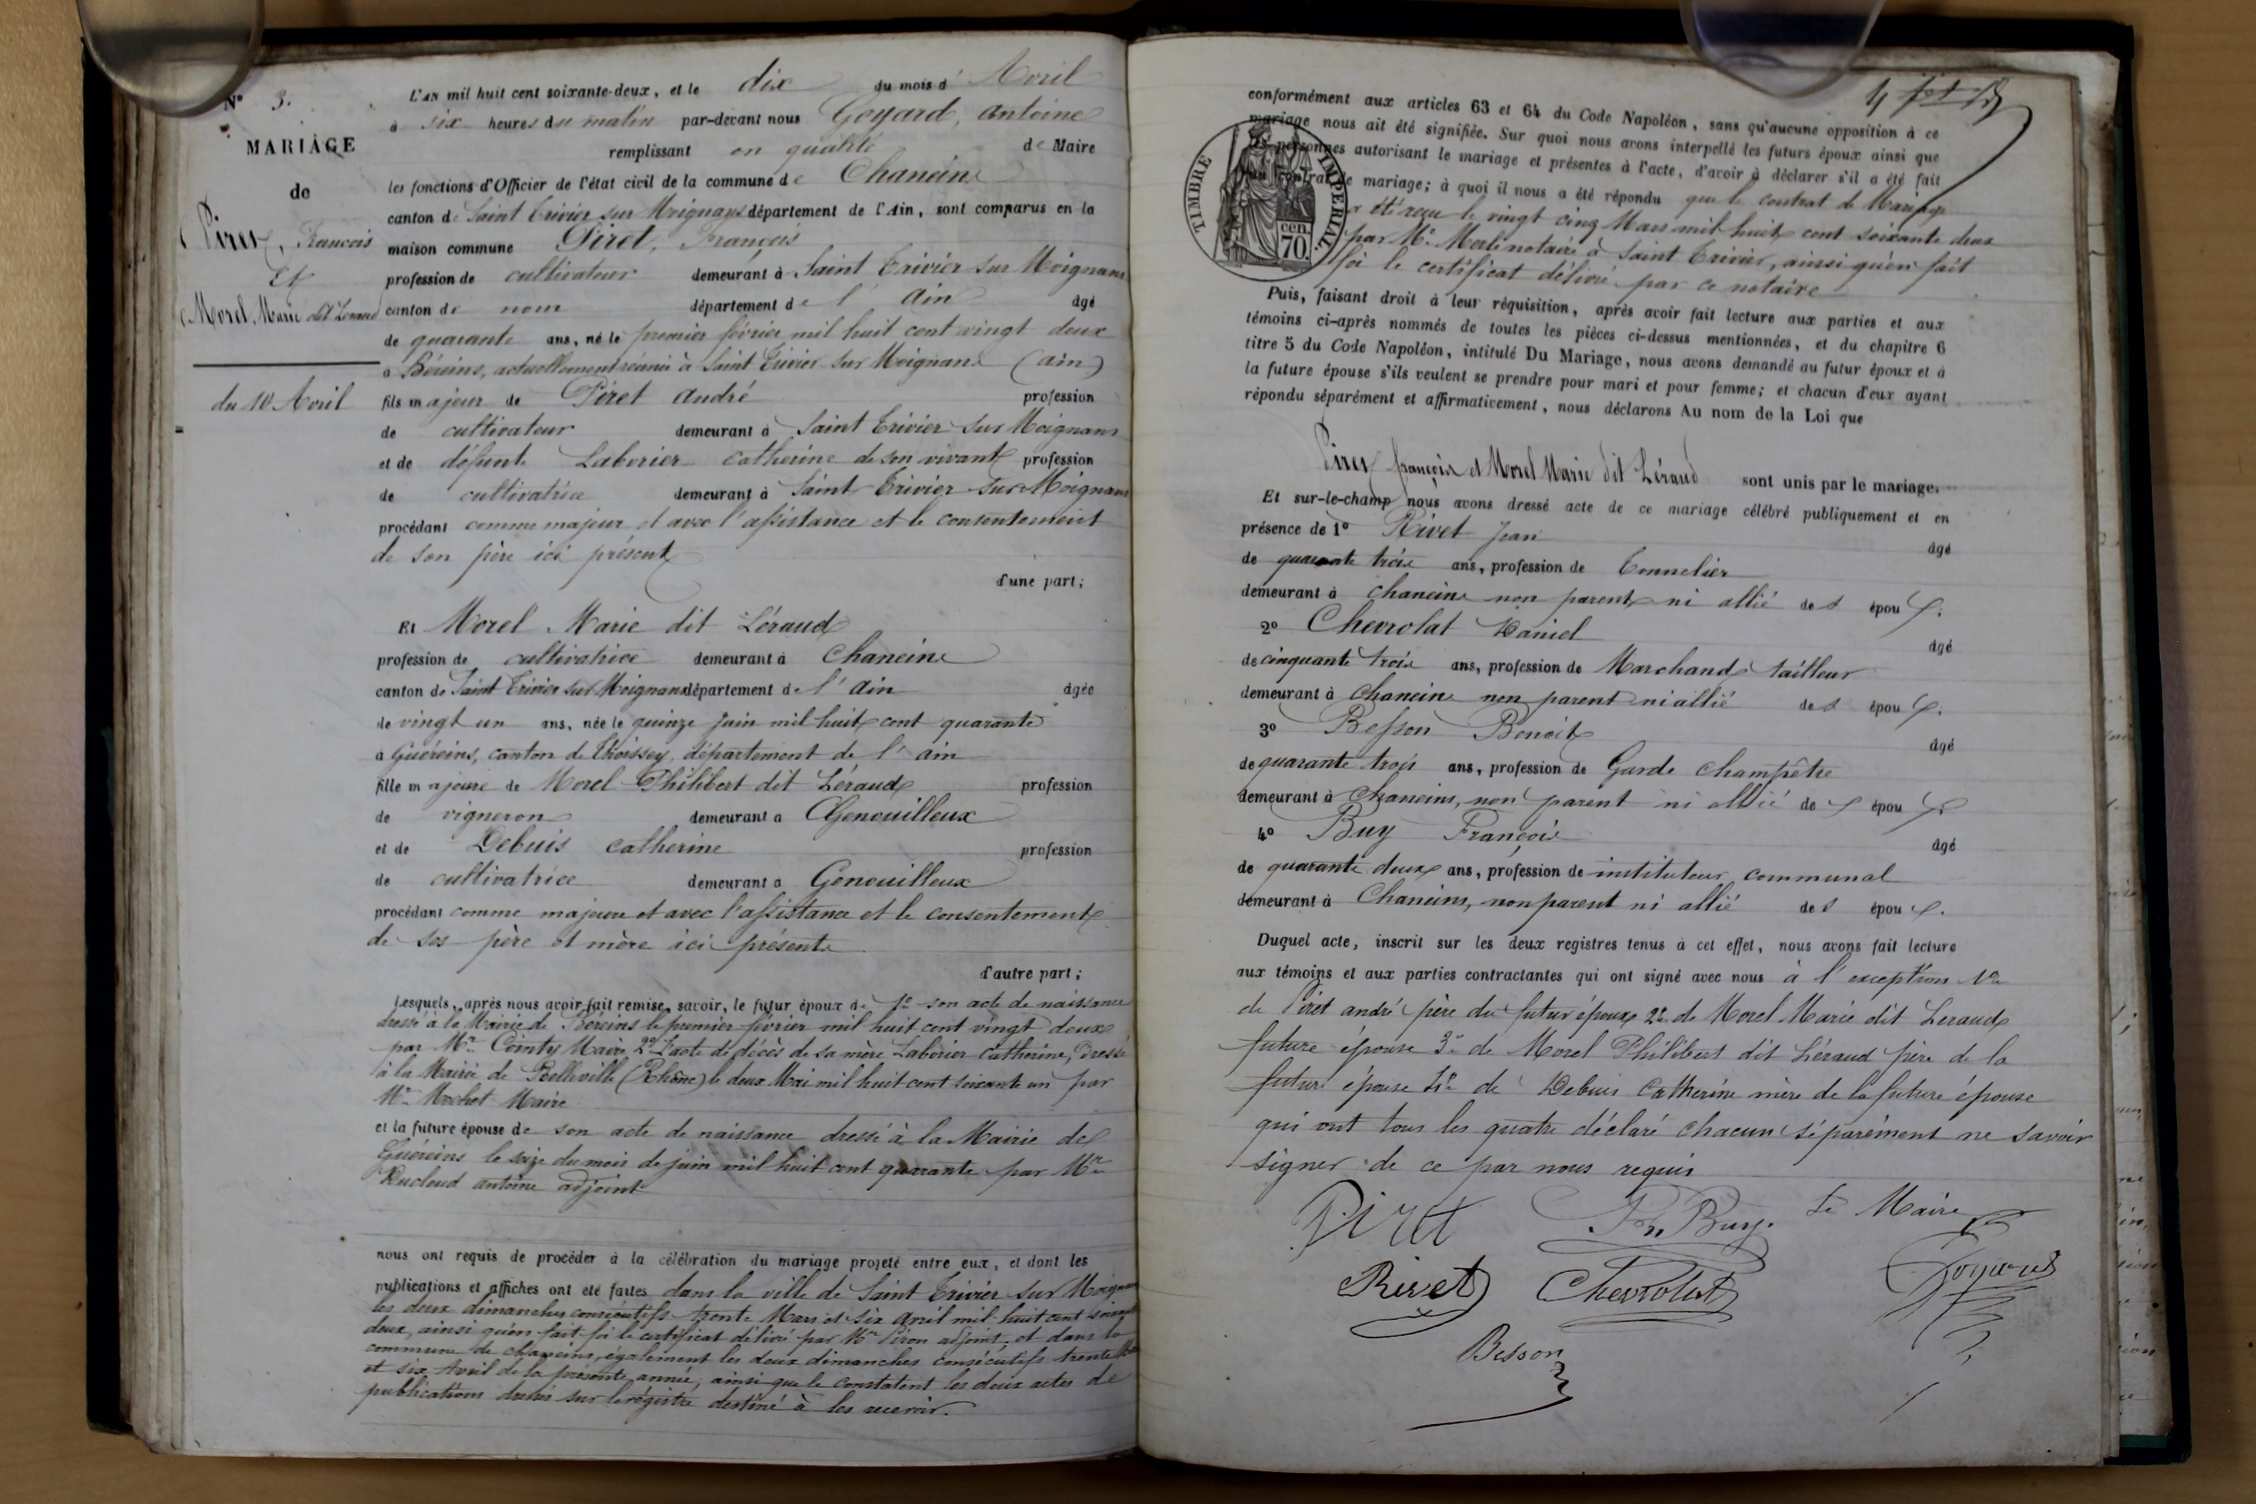 N° 3.
MARIAGE
de
Piret, François
Et
Morel, Marie dit Léraud
du 10 Avril
L'AN mil huit cent soixante-deux, et le dix du mois d'Avril
à six heures du matin par-devant nous Goyard, Antoine
remplissant en qualité de Maire
les fonctions d'Officier de l'état civil de la commune de Chaneins
canton de Saint Trivier sur Moignans département de l'Ain, sont comparus en la
maison commune Piret, François
profession de cultivateur demeurant à Saint Trivier sur Moignans
canton de nom département de l'Ain âgé
de quarante ans, né le premier février mil huit cent vingt deux
à Béreins, actuellement réunie à Saint Trivier sur Moignans (ain)
fils majeur de Piret André profession
de cultivateur demeurant à Saint Trivier sur Moignans
et de défunte Laborier Catherine de son vivant profession
de cultivatrice demeurant à Saint Trivier sur Moignans
procédant comme majeur et avec l'assistance et le consentement
de son père ici présent
d'une part;
Et Morel Marie dit Léraud
profession de cultivatrice demeurant à Chaneins
canton de Saint Trivier sur Moignans département de l'Ain âgée
de vingt un ans, née le quinze juin mil huit cent quarante
à Guéreins, canton de Thoissey, département de l'ain
fille majeure de Morel Philibert dit Léraud profession
de vigneron demeurant à Genouilleux
et de Debuis Catherine profession
de cultivatrice demeurant à Genouilleux
procédant comme majeure et avec l'assistance et le consentement
de ses père et mère ici présents
d'autre part;
Lesquels, après nous avoir fait remise, savoir, le futur époux de 1° son acte de naissance
dressé à la Mairie de Béreins le premier février mil huit cent vingt deux
par Mr Cointy Maire 2° l'acte de décès de sa mère Laborier Catherine, dressé
à la Mairie de Belleville (Rhône) le deux Mai mil huit cent soixante un par
Mr Mochet Maire
et la future épouse de son acte de naissance dressé à la Mairie de
Guéreins le seize du mois de juin mil huit cent quarante par Mr
Ducloud antoine adjoint
nous ont requis de procéder à la célébration du mariage projeté entre eux, et dont les
publications et affiches ont été faites dans la ville de Saint Trivier sur Moignans
les deux dimanches consécutifs trente Mars et six avril mil huit cent soixante
deux, ainsi qu'en fait foi le certificat délivré par Mr Piron adjoint, et dans la
commune de chaneins, également les deux dimanches consécutifs trente Mars
et six Avril de la présente année, ainsi que le constatent les deux actes de
publications dressés sur le régistre destiné à les recevoir.
conformément aux articles 63 et 64 du Code Napoléon, sans qu'aucune opposition à ce
mariage nous ait été signifiée. Sur quoi nous avons interpellé les futurs époux ainsi que
les personnes autorisant le mariage et présentes à l'acte, d'avoir à déclarer s'il a été fait
un contrat de mariage; à quoi il nous a été répondu que le contrat de Mariage
a été reçu le vingt cinq Mars mil huit cent soixante deux
par Me Merle notaire à Saint Trivier, ainsi qu'en fait
foi le certificat délivré par ce notaire
TIMBRE IMPERIAL.
70. cen.
Puis, faisant droit à leur réquisition, après avoir fait lecture aux parties et aux
témoins ci-après nommés de toutes les pièces ci-dessus mentionnées, et du chapitre 6
titre 5 du Code Napoléon, intitulé Du Mariage, nous avons demandé au futur époux et à
la future épouse s'ils veulent se prendre pour mari et pour femme; et chacun d'eux ayant
répondu séparément et affirmativement, nous déclarons Au nom de la Loi que
Piret françois et Morel Marie dit Léraud sont unis par le mariage.
Et sur-le-champ nous avons dressé acte de ce mariage célébré publiquement et en
présence de 1° Rivet Jean âgé
de quarante trois ans, profession de Tonnelier
demeurant à Chaneins non parent ni allié des époux.
2° Chevrolat Daniel âgé
de cinquante trois ans, profession de Marchand tailleur
demeurant à Chaneins non parent ni allié des époux.
3° Besson Benoit âgé
de quarante trois ans, profession de Garde champêtre
demeurant à Chaneins, non parent ni allié des époux
4° Buy François âgé
de quarante deux ans, profession de instituteur communal
demeurant à Chaneins, non parent ni allié des époux.
Duquel acte, inscrit sur les deux registres tenus à cet effet, nous avons fait lecture
aux témoins et aux parties contractantes qui ont signé avec nous à l'exception 1°
de Piret andré père du futur époux 2° de Morel Marie dit Leraud
future épouse 3° de Morel Philibert dit Léraud père de la
future épouse 4° de Debuis Catherine mère de la future épouse
qui ont tous les quatre déclaré chacun séparément ne savoir
signer de ce par nous requis
Piret Fr Buy. Le Maire
Rivet Chevrolat Goyard
Besson